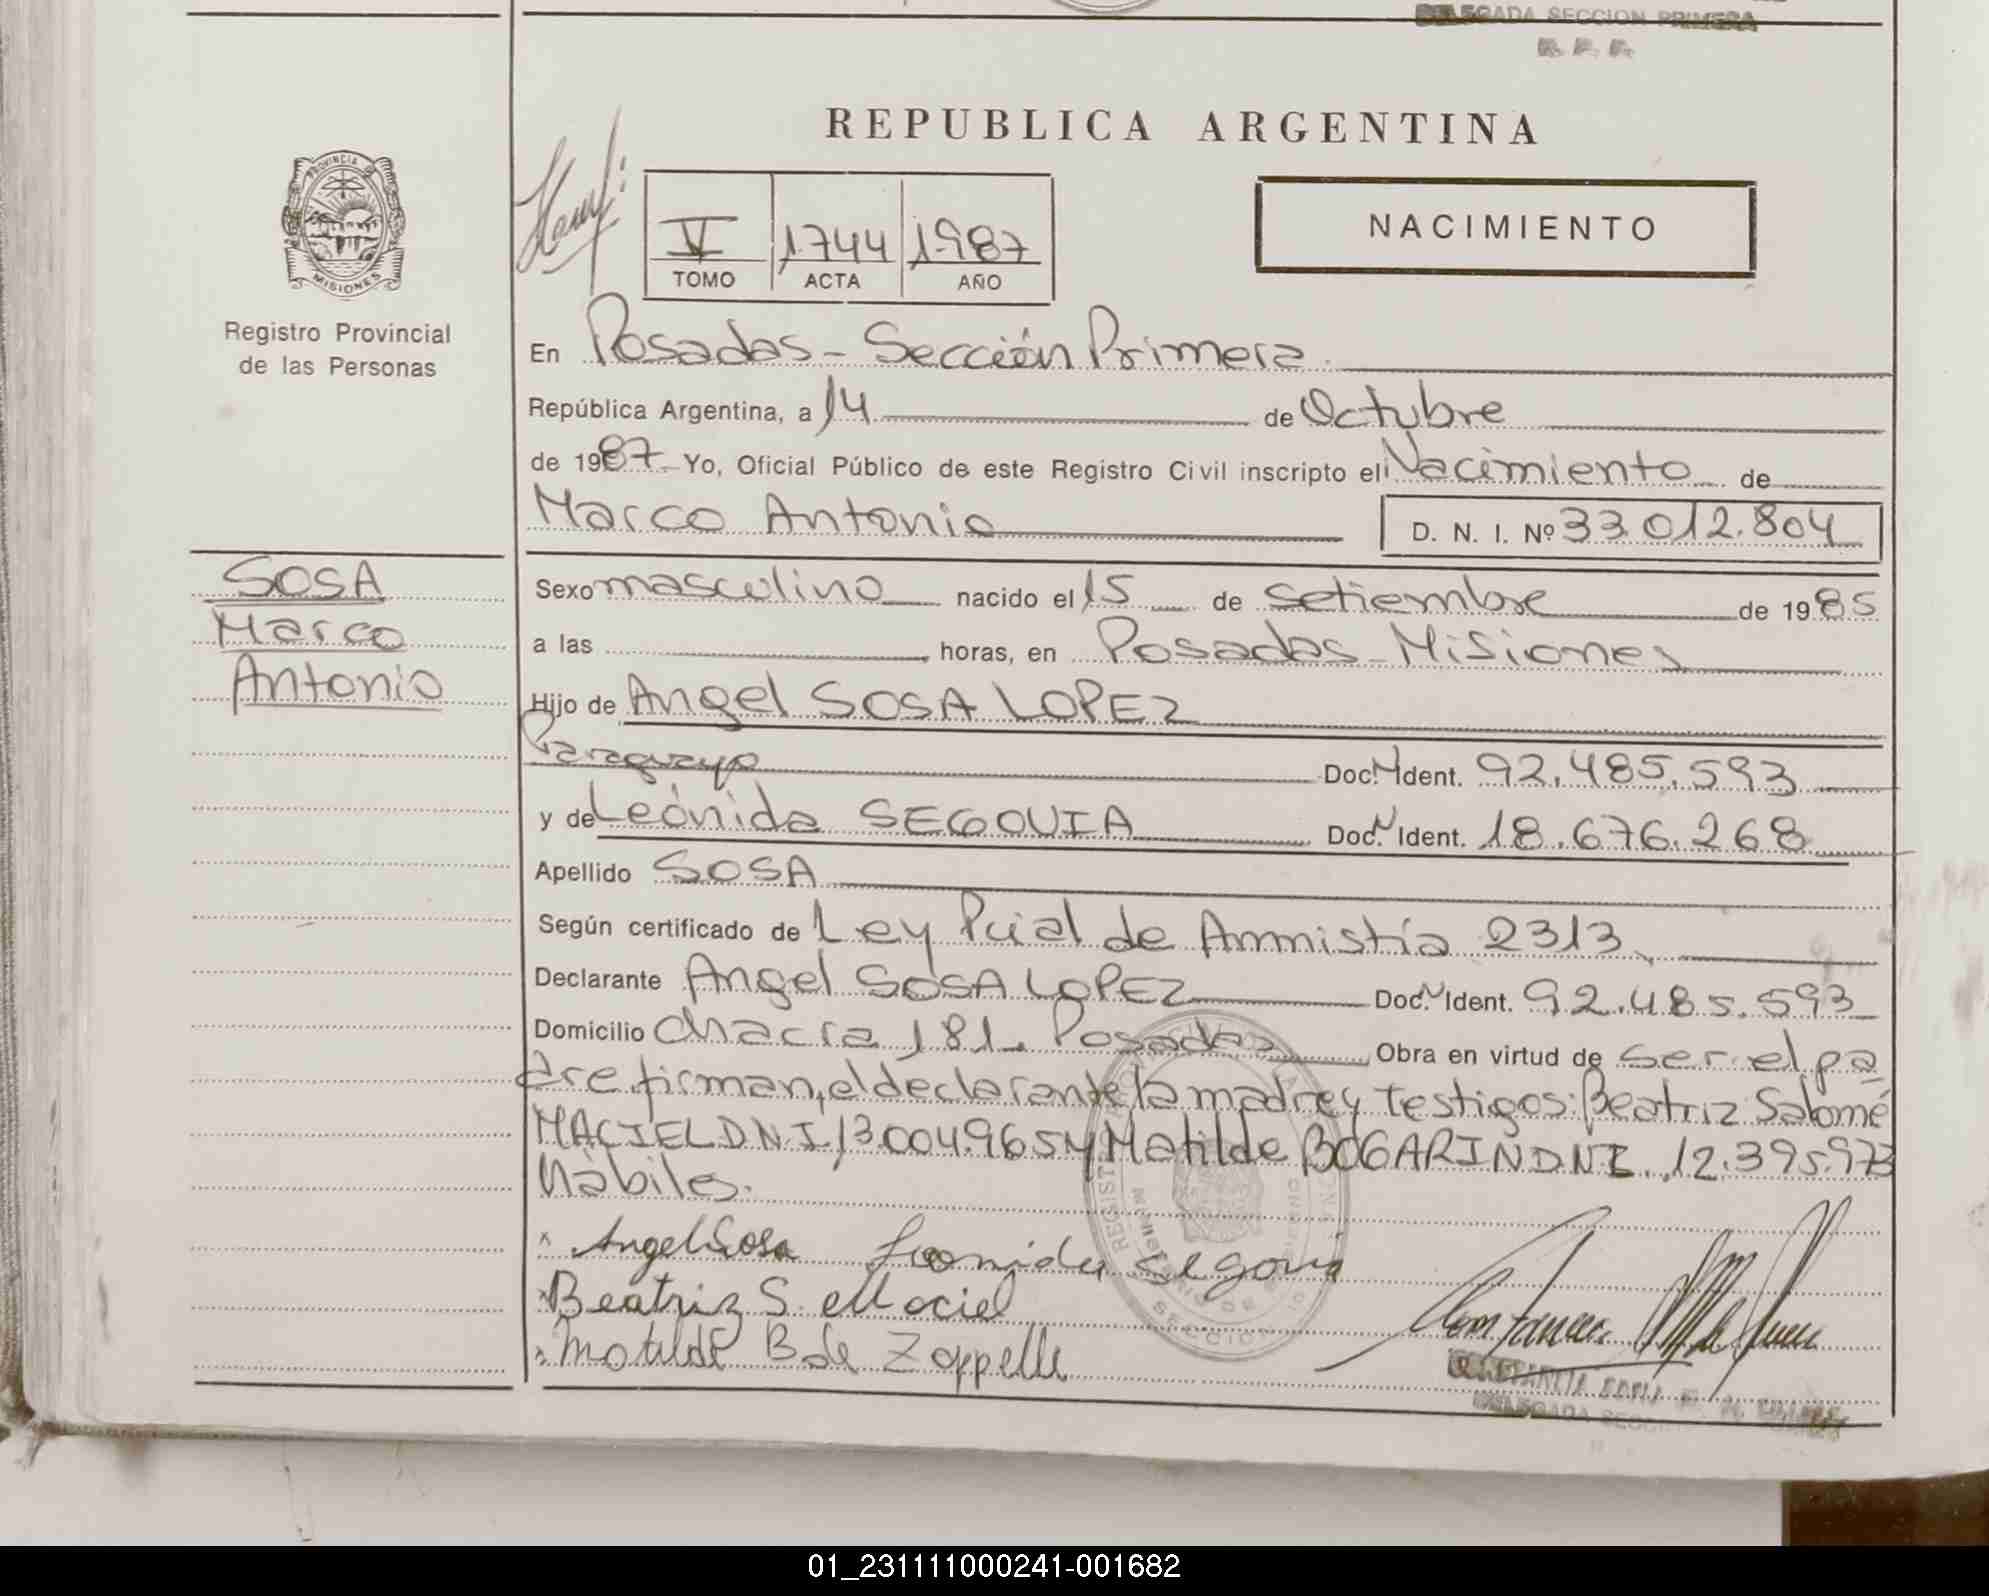 DELEGADA SECCION PRIMERA
R. P. P.
REPUBLICA ARGENTINA
PROVINCIA DE
MISIONES
Registro Provincial
de las Personas
V 1744 1987
TOMO ACTA AÑO
NACIMIENTO
En Posadas - Sección Primera
República Argentina, a 14 de Octubre
de 1987 Yo, Oficial Público de este Registro Civil inscripto el Nacimiento de
Marco Antonio D. N. I. Nº 33.012.804
SOSA
Marco
Antonio
Sexo masculino nacido el 15 de Setiembre de 1985
a las horas, en Posadas - Misiones
Hijo de Angel SOSA LOPEZ
Paraguayo Doc. N Ident. 92.485.593
y de Leónida SEGOVIA Doc. N Ident. 18.676.268
Apellido SOSA
Según certificado de Ley Pcial de Amnistía 2313
Declarante Angel SOSA LOPEZ Doc. N Ident. 92.485.593
Domicilio Chacra 181. Posadas Obra en virtud de ser el pa
dre firman, el declarante la madre y Testigos: Beatriz Salomé
MACIEL D.N.I. 13.004.965 y Matilde BOGARIN DNI. 12.395.973
hábiles.
Angel Sosa Leonida Segovia
Beatriz S. Maciel
Matilde B de Zoppelle
DELEGADA SECCION
01_231111000241-001682